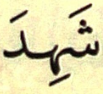 شَهِدَ